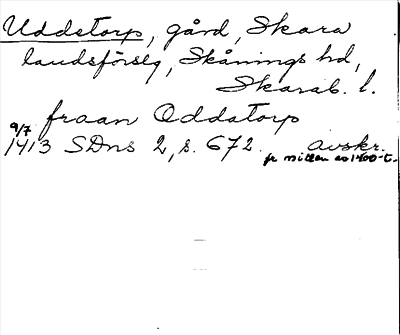 Uddetorp, gård, Skara
landsförslg, Skånings hd,
Skarab. l.
fraan Oddatorp
9/7 1413 SDns 2, s. 672. avskr.
fr mitten av 1400-t.